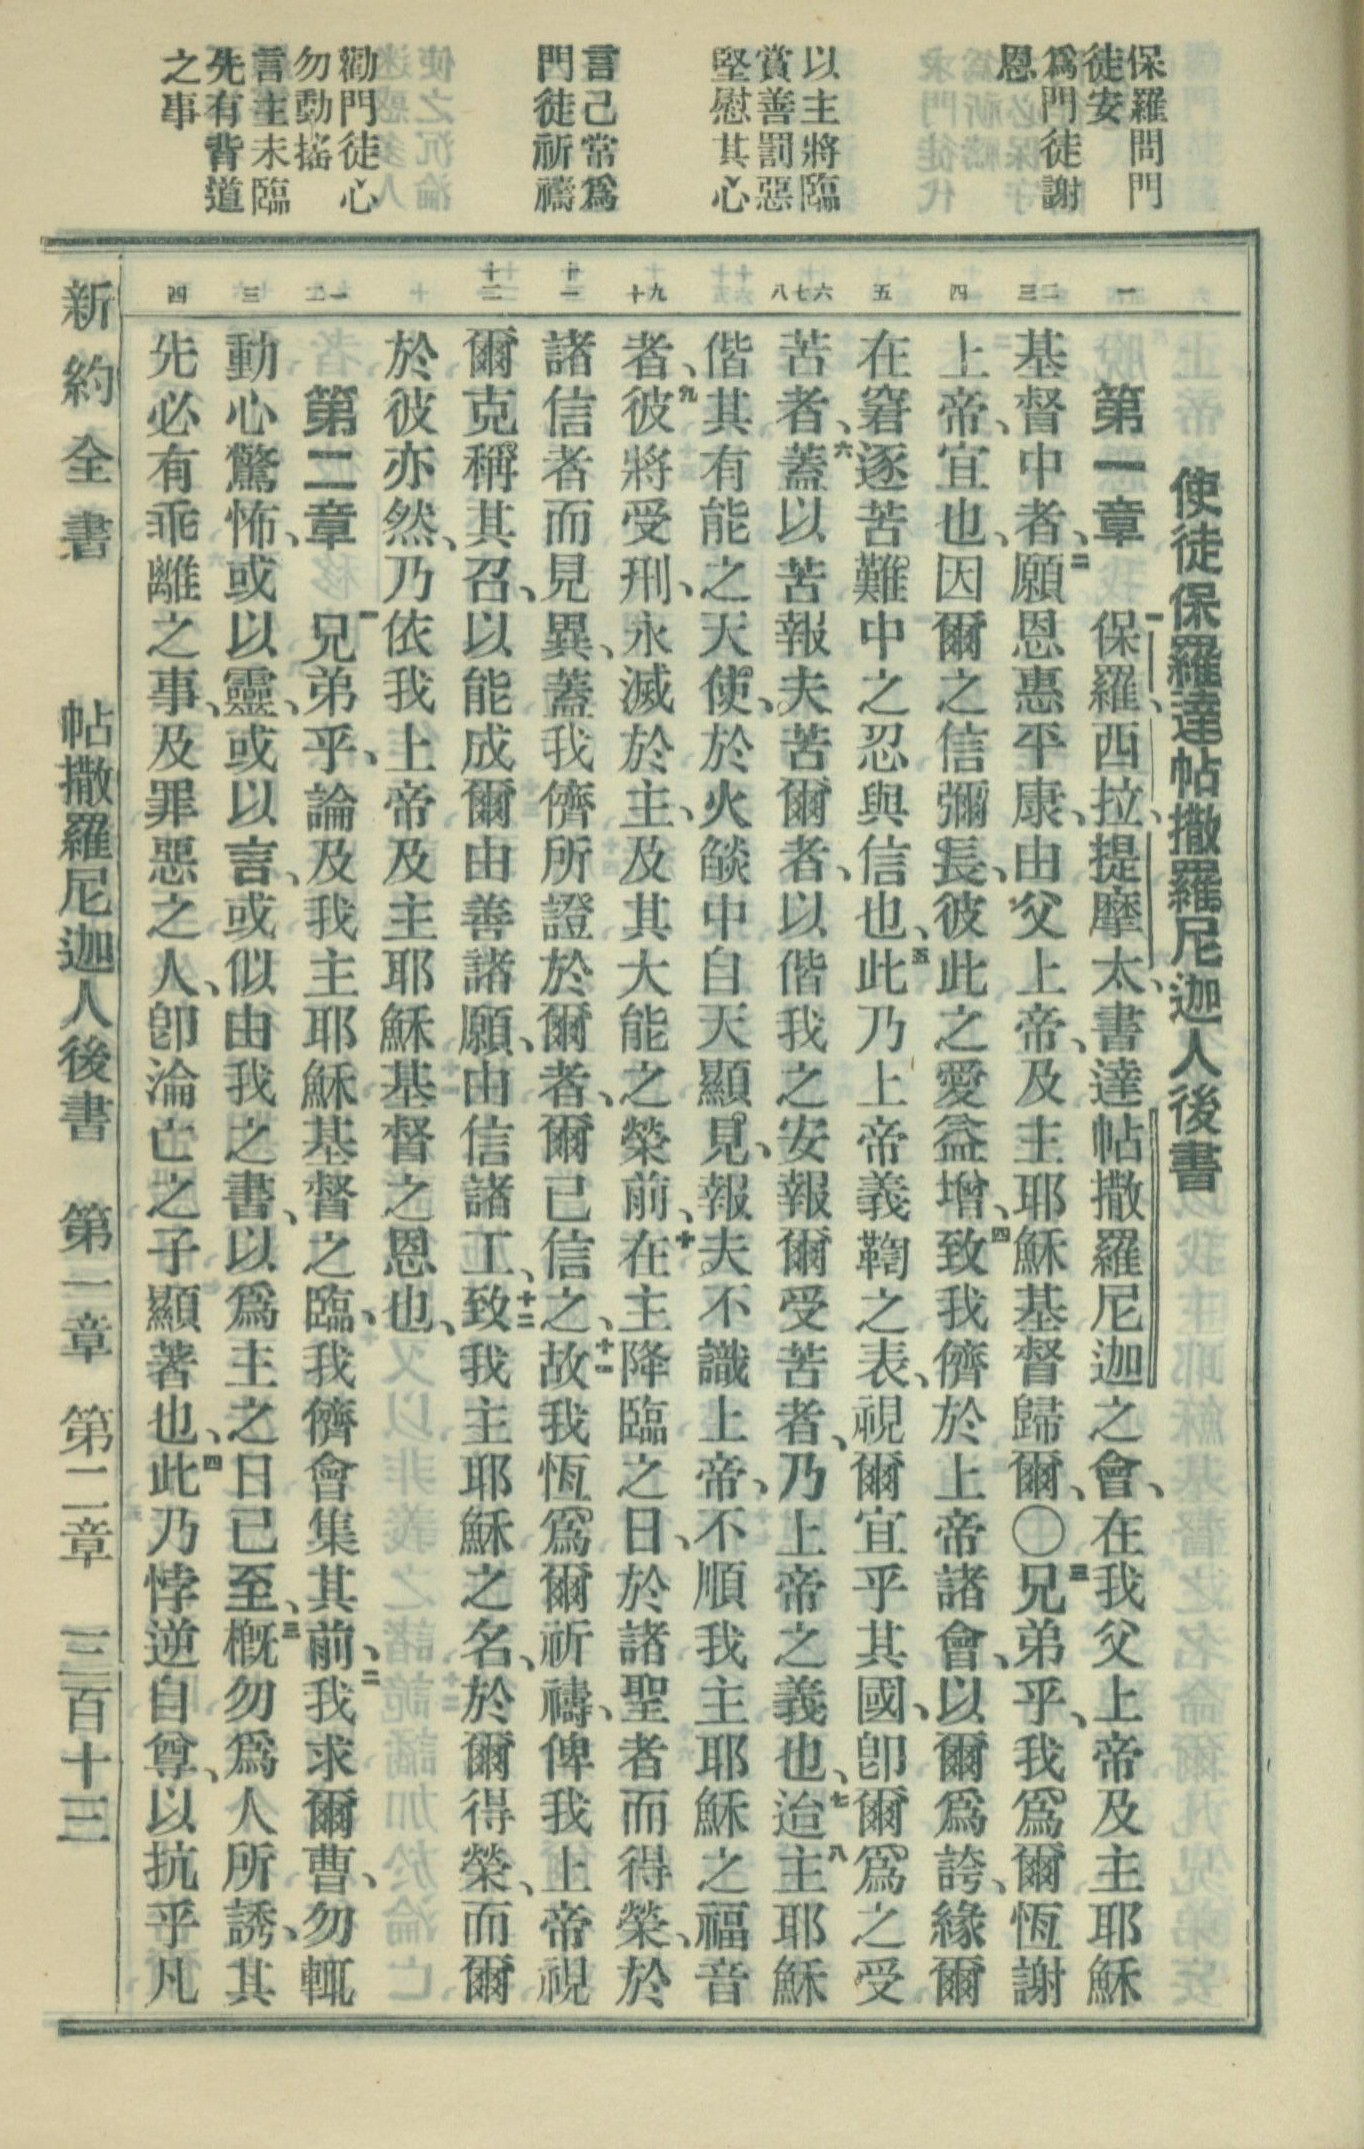 保羅問門
徒安
爲門徒謝
恩
以主將臨
賞善罰惡
堅慰其心
言己常爲
門徒祈禱
勸門徒心
勿動搖
言主未臨
先有背道
之事
一
二三
四
五
六七八
九十
十一
十二
一二
三
四
使徒保羅達帖撒羅尼迦人後書
第一章 一保羅、西拉、提摩太、書達帖撒羅尼迦之會、在我父上帝及主耶穌
基督中者、二願恩惠平康、由父上帝、及主耶穌基督歸爾、〇三兄弟乎、我爲爾恆謝
上帝、宜也、因爾之信彌長、彼此之愛益增、四致我儕於上帝諸會、以爾爲誇、緣爾
在窘逐苦難中之忍與信也、五此乃上帝義鞫之表、視爾宜乎其國、卽爾爲之受
苦者、六蓋以苦報夫苦爾者、以偕我之安報爾受苦者、乃上帝之義也、七迨主八耶穌
偕其有能之天使、於火燄中自天顯見、報夫不識上帝、不順我主耶穌之福音
者、九彼將受刑、永滅於主、及其大能之榮前、十在主降臨之日、於諸聖者而得榮、於
諸信者而見異、蓋我儕所證於爾者、爾已信之、十一故我恆爲爾祈禱、俾我上帝視
爾克稱其召、以能成爾由善諸願、由信諸工、十二致我主耶穌之名、於爾得榮、而爾
於彼亦然、乃依我上帝及主耶穌基督之恩也、
第二章 一兄弟乎、論及我主耶穌基督之臨、我儕會集其前、二我求爾曹、勿輒
動心驚怖、或以靈、或以言、或似由我之書、以爲主之日已至、三槪勿爲人所誘、其
先必有乖離之事、及罪惡之人、卽淪亡之子顯著也、四此乃悖逆自尊、以抗乎凡
新約全書 帖撒羅尼迦人後書 第一章 第二章 三百十三